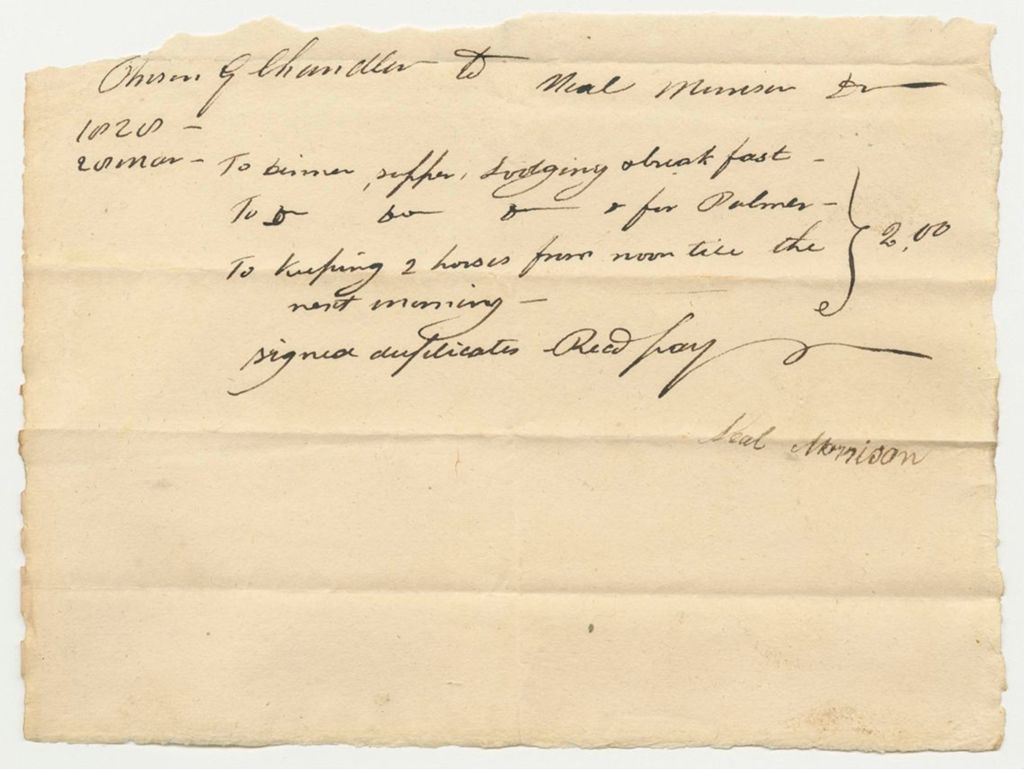 Anson G Chandler to Neal Morrison Dr
1828 -
28 Mar - To dinner, supper, Lodging & breakfast -
To Do Do Do & for Palmer -
To Keeping 2 horses from noon till the 2,00
next morning -
signed duplicates Recd pay
Neal Morrison